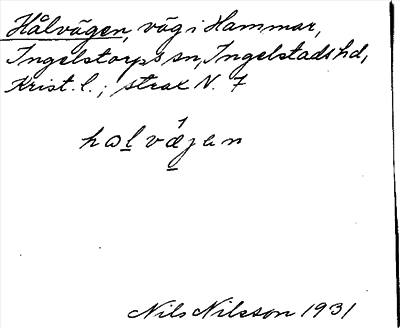 Hålvägen, väg i Hammar,
Ingelstorps sn, Ingelstads hd,
Krist. l.; strax N. 7
hɷlvǽjen
Nils Nilsson 1931